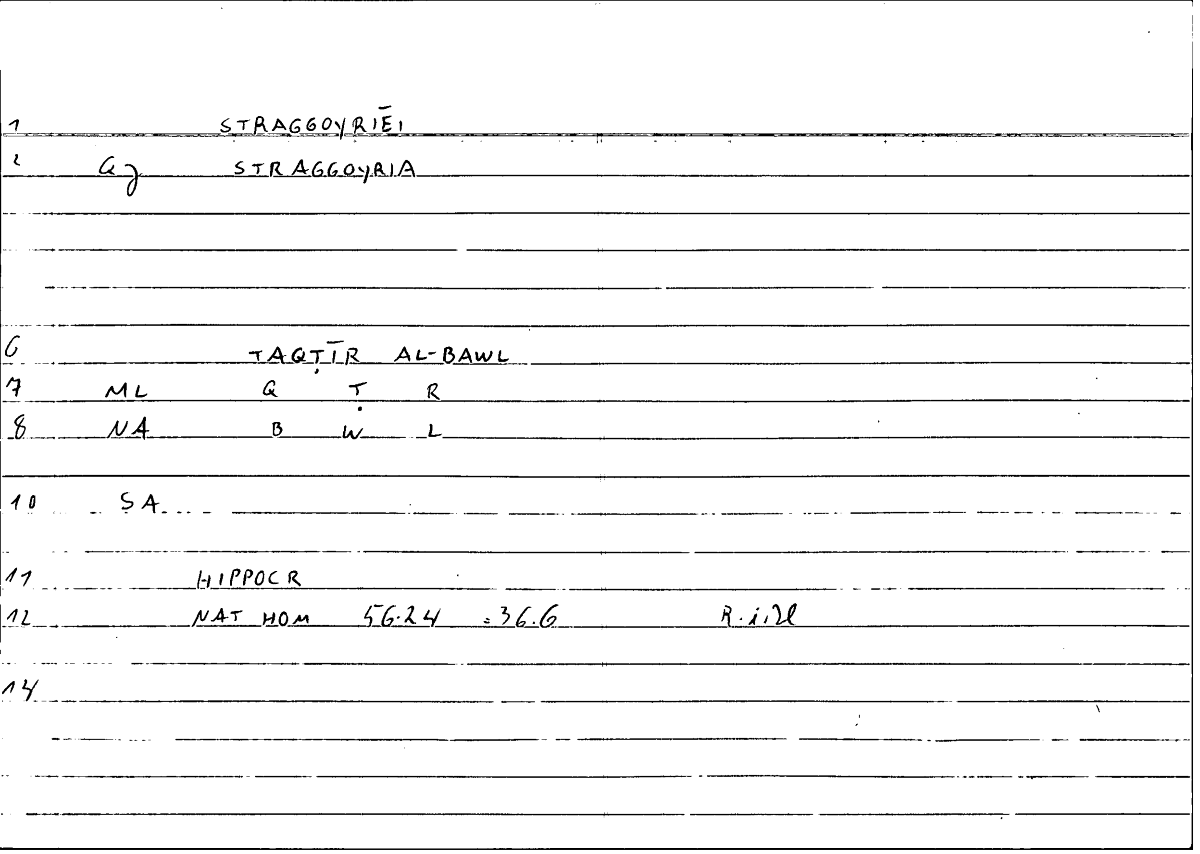 1 STRAGGOYRIĒI
2 Gj STRAGGOYRIA
6 TAQṬĪR AL-BAWL
7 ML Q Ṭ R
8 NA B W L
10 SA
11 HIPPOCR
12 NAT HOM 56.24 =36.6
14